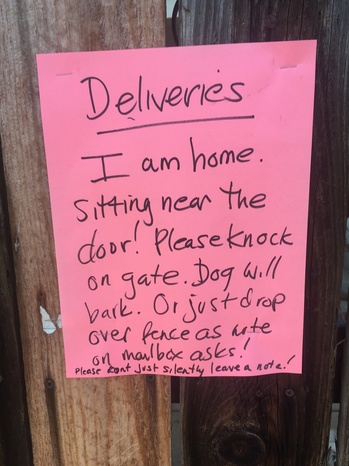 Deliveries
I am home.
Sitting near the
door! Please knock
on gate. Dog will
bark. Or just drop
over fence as note
on mailbox asks!
Please dont just silently leave a note!